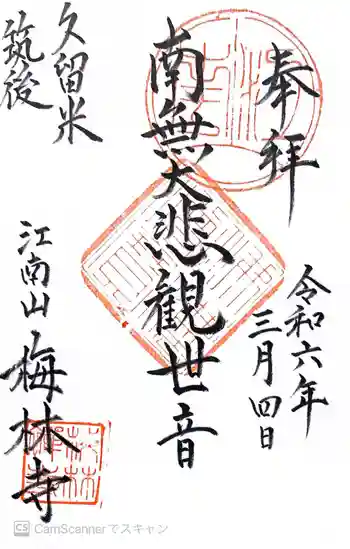 奉拝
令和六年
三月四日
南無大悲観世音
筑後
久留米
江南山
梅林寺
CS CamScannerでスキャン